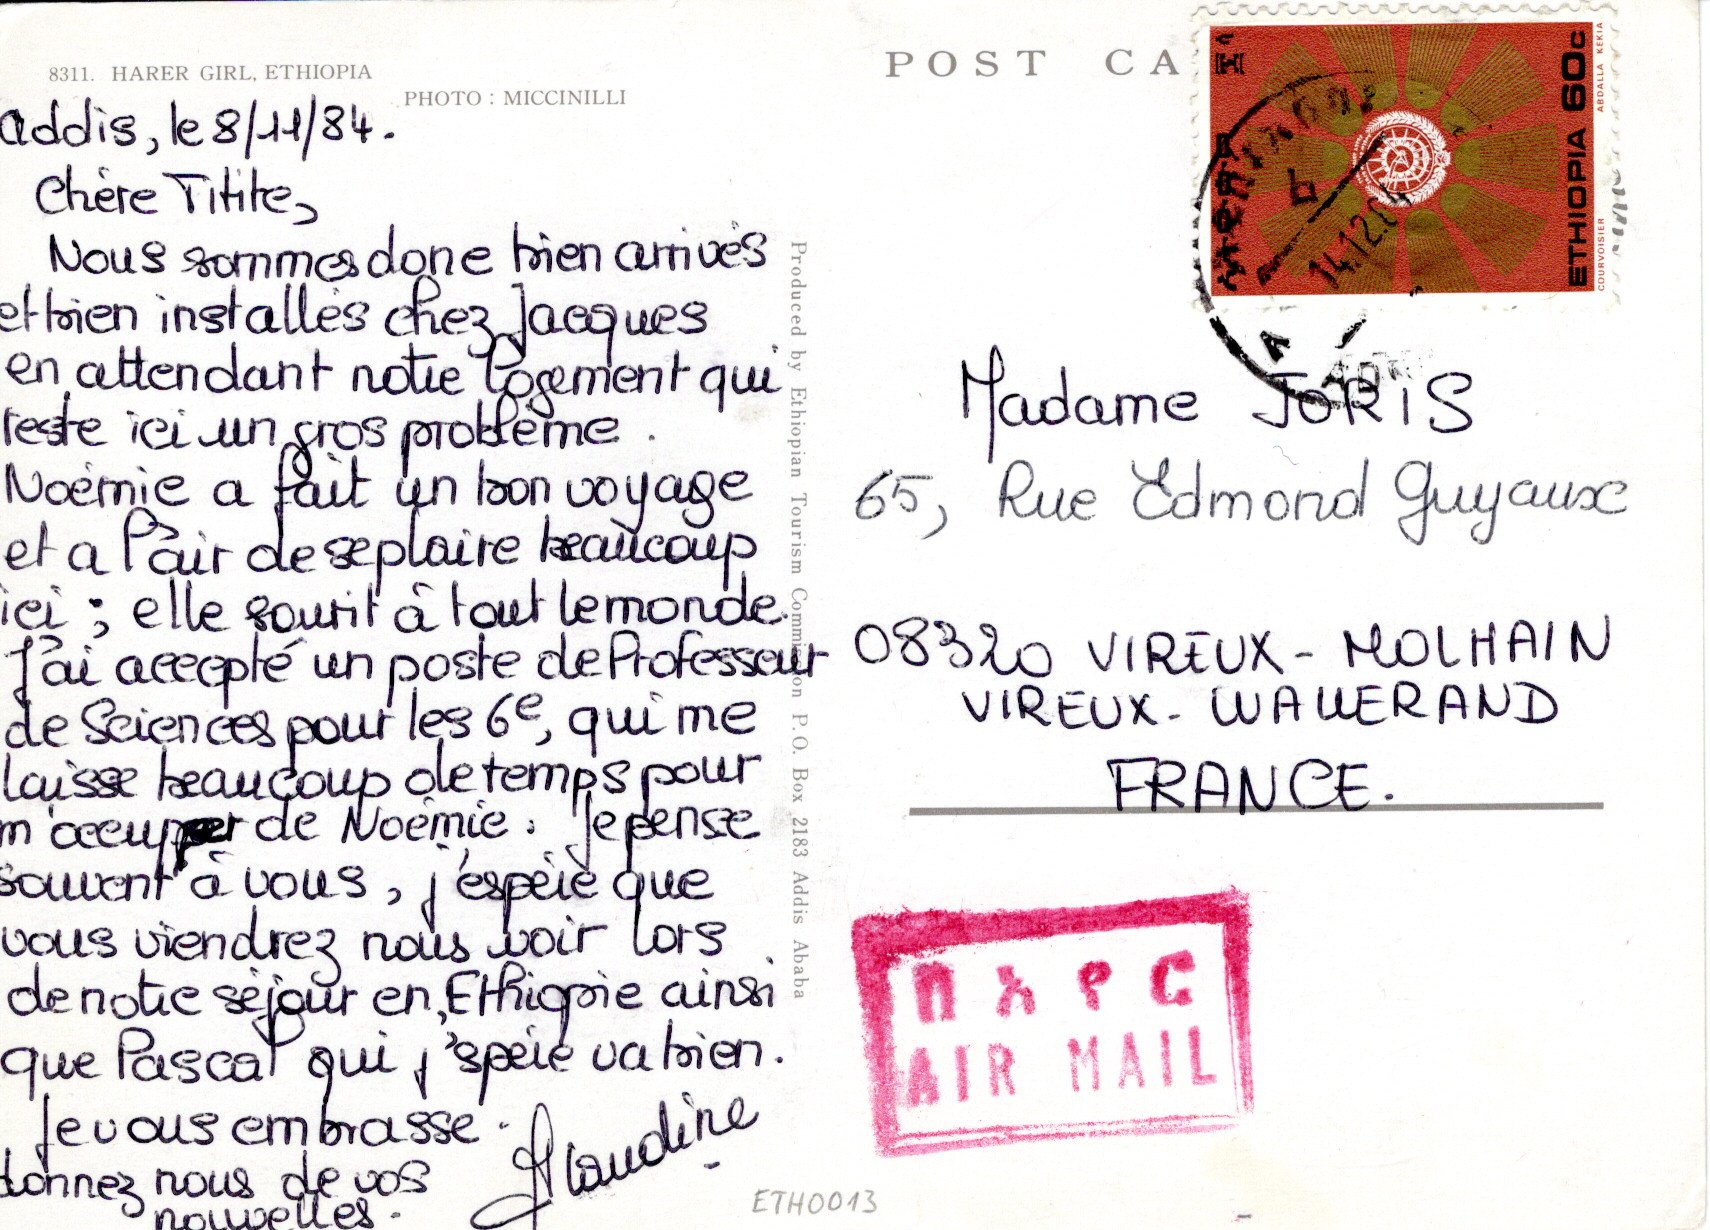 8311. HARER GIRL, ETHIOPIA
PHOTO : MICCINILLI
Addis, le 8/11/84.
Chère Titite,
Nous sommes donc bien arrivés
et bien installés chez Jacques
en attendant notre logement qui
reste ici un gros problème.
Noémie a fait un bon voyage
et a l'air de se plaire beaucoup
ici ; elle sourit à tout le monde.
J'ai accepté un poste de Professeur
de Sciences pour les 6e, qui me
laisse beaucoup de temps pour
m'occuper de Noémie. Je pense
souvent à vous, j'espère que
vous viendrez nous voir lors
de notre séjour en Ethiopie ainsi
que Pascal qui j'spère va bien.
Je vous embrasse.
Claudine
donnez nous de vos
nouvelles.
Produced by Ethiopian Tourism Commission P.O. Box 2183 Addis Ababa
POST CA
ETHIOPIA 60c
ABDALLA KEKIA
COURVOISIER
14.12.
Madame JORIS
65, Rue Edmond Guyaux
08320 VIREUX-MOLHAIN
VIREUX-WALLERAND
FRANCE.
በአየር
AIR MAIL
ETH0013